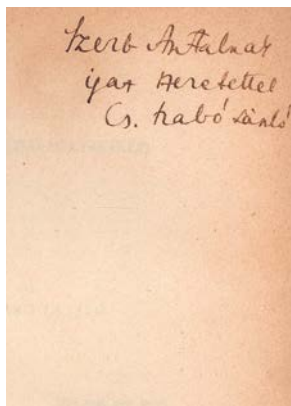 Szerb Antalnak
igaz szeretettel
Cs. Szabó László